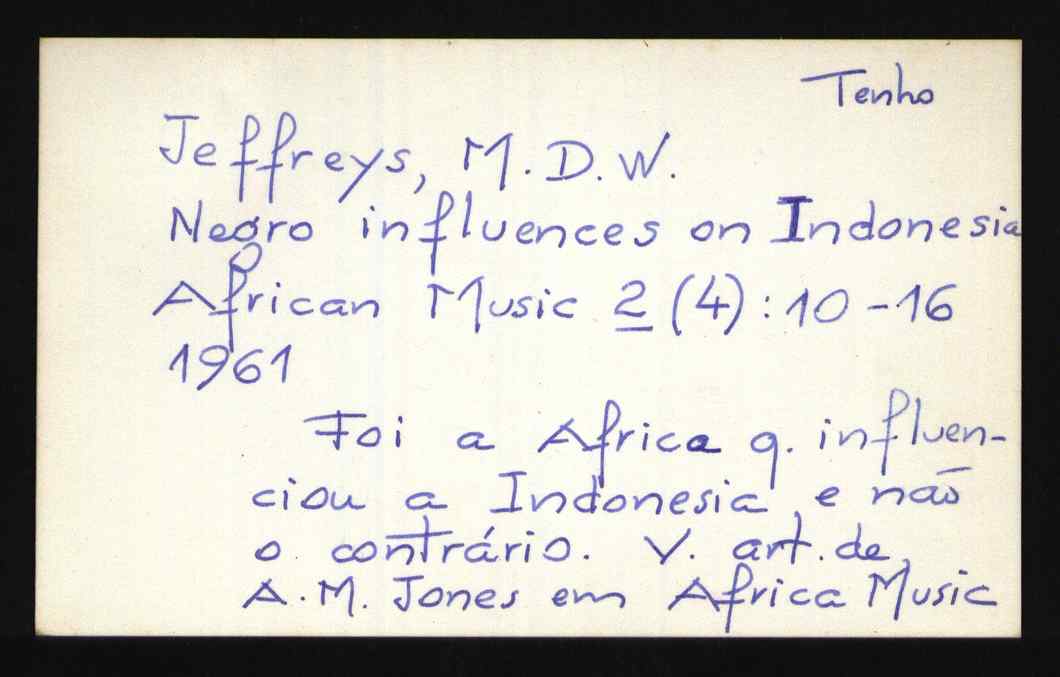 Tenho
Jeffreys, M.D.W.
Negro influences on Indonesia
African Music 2 (4): 10-16
1961
Foi a Africa q. influen-
ciou a Indonesia, e não
o contrário. V. art. de
A.M. Jones em Africa Music